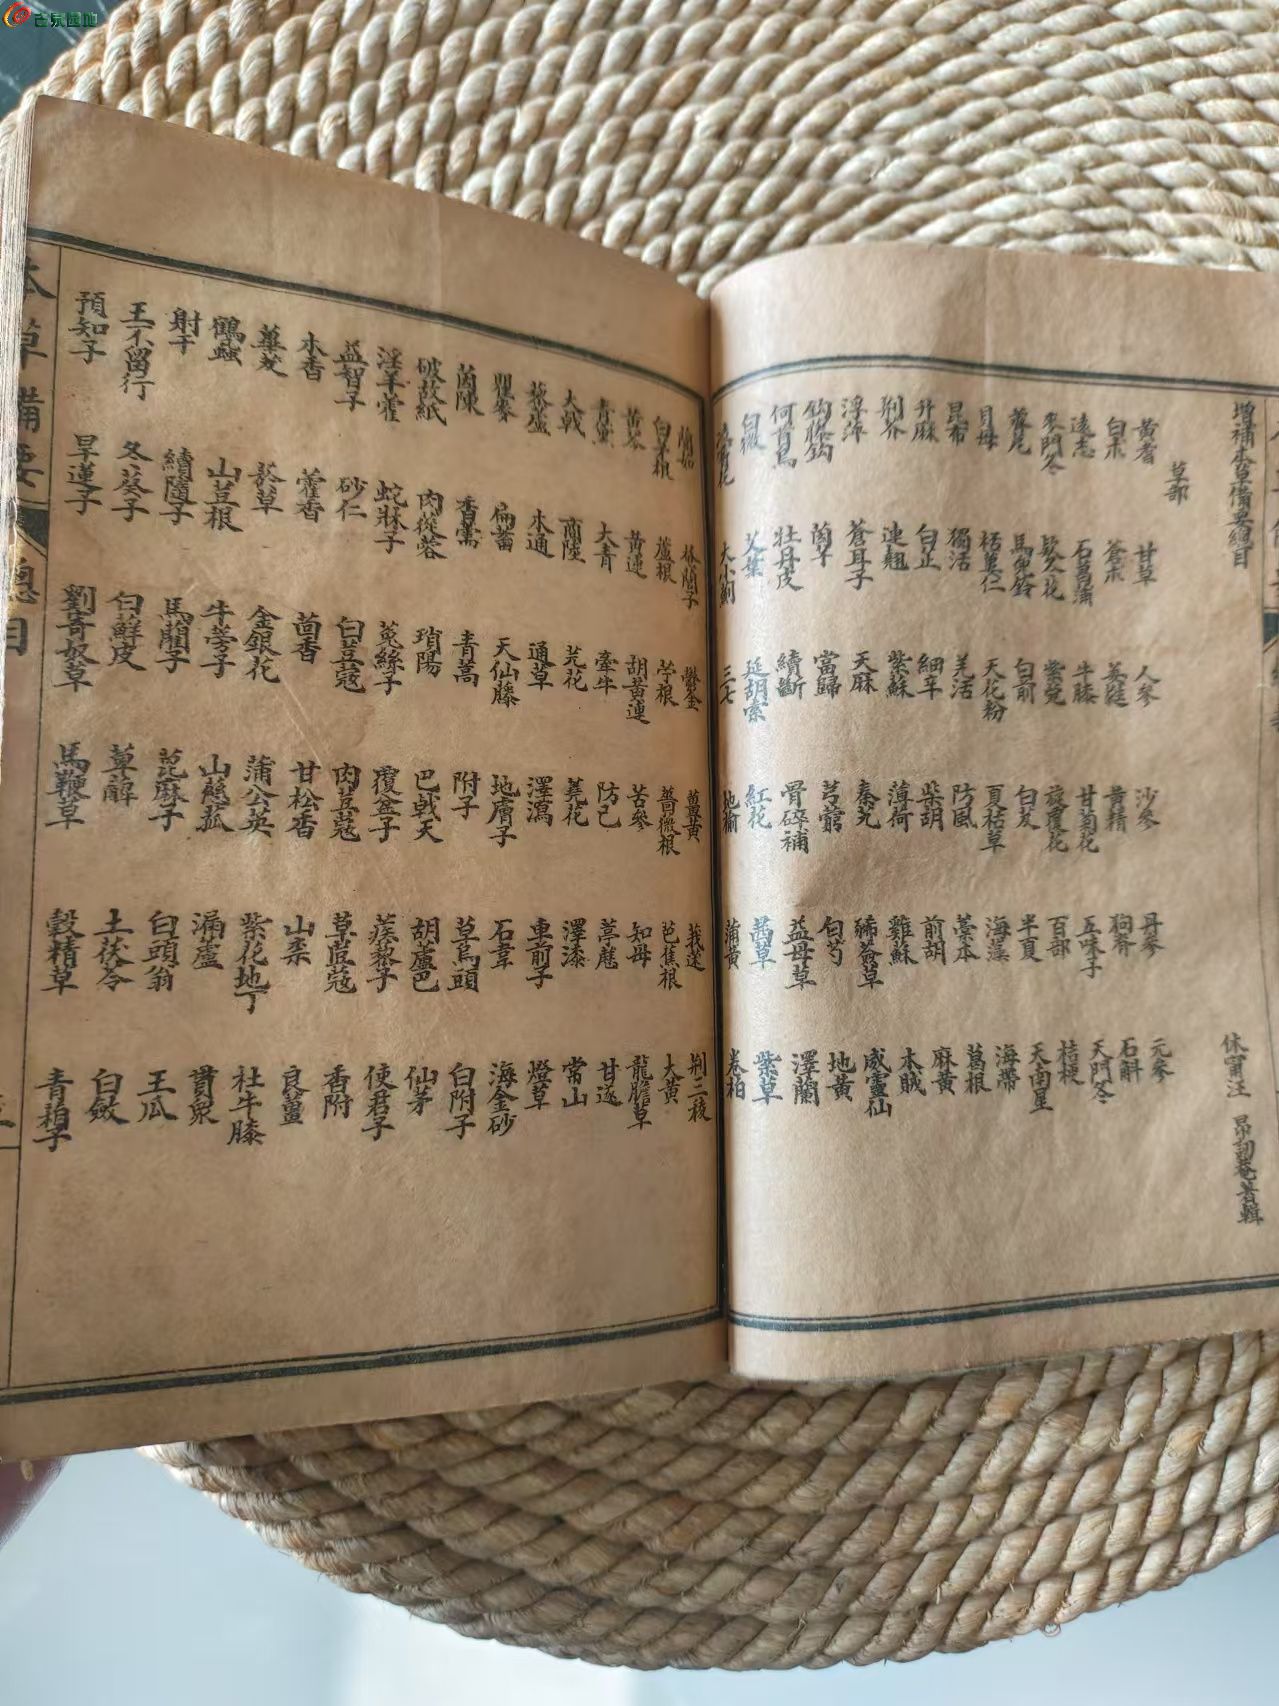 增補本草備要總目
休寗汪 昂訒菴著輯
草部
黃耆 甘草 人參 沙參 丹參 元參
白朮 蒼朮 萎蕤 黃精 狗脊 石斛
遠志 石菖蒲 牛膝 甘菊花 五味子 天門冬
麥門冬 欵冬花 紫菀 旋覆花 百部 桔梗
蕤尾 馬兜鈴 白前 白芨 半夏 天南星
貝母 栝蔞仁 天花粉 夏枯草 海藻 海帶
昆布 獨活 羌活 防風 藁本 葛根
升麻 白芷 細辛 柴胡 前胡 麻黃
荆芥 連翹 紫蘇 薄荷 雞蘇 木賊
浮萍 蒼耳子 天麻 秦艽 豨薟草 威靈仙
鈎藤鈎 茵芋 當歸 芎藭 白芍 地黃
何首烏 牡丹皮 續斷 骨碎補 益母草 澤蘭
白薇 艾葉 延胡索 紅花 茜草 紫草
大小薊 三七 地榆 蒲黃 卷柏
蕳茹 菴䕡子 鬱金 薑黃 莪蒁 荆三稜
白茅根 蘆根 苧根 薔薇根 芭蕉根 大黃
黃芩 黃連 胡黃連 苦參 知母 龍膽草
青黛 大青 牽牛 防己 葶藶 甘遂
大戟 商陸 芫花 蕘花 澤漆 常山
藜蘆 木通 通草 澤瀉 車前子 燈草
瞿麥 扁蓄 天仙藤 地膚子 石韋 海金砂
茵陳 香薷 青蒿 附子 草烏頭 白附子
破故紙 肉蓯蓉 瑣陽 巴戟天 胡蘆巴 仙茅
淫羊藿 蛇牀子 菟絲子 覆盆子 蒺藜子 使君子
益智子 砂仁 白荳蔻 肉荳蔻 草荳蔻 香附
木香 藿香 茴香 甘松香 山柰 良薑
蓽茇 菸草 金銀花 蒲公英 紫花地丁 杜牛膝
鶴蝨 山荳根 牛蒡子 山茲菰 漏蘆 貫衆
射干 續隨子 馬藺子 萞麻子 白頭翁 王瓜
王不留行 冬葵子 白鮮皮 萆薢 土茯苓 白斂
預知子 旱蓮子 劉寄奴草 馬鞭草 穀精草 青葙子
本草備要 總目